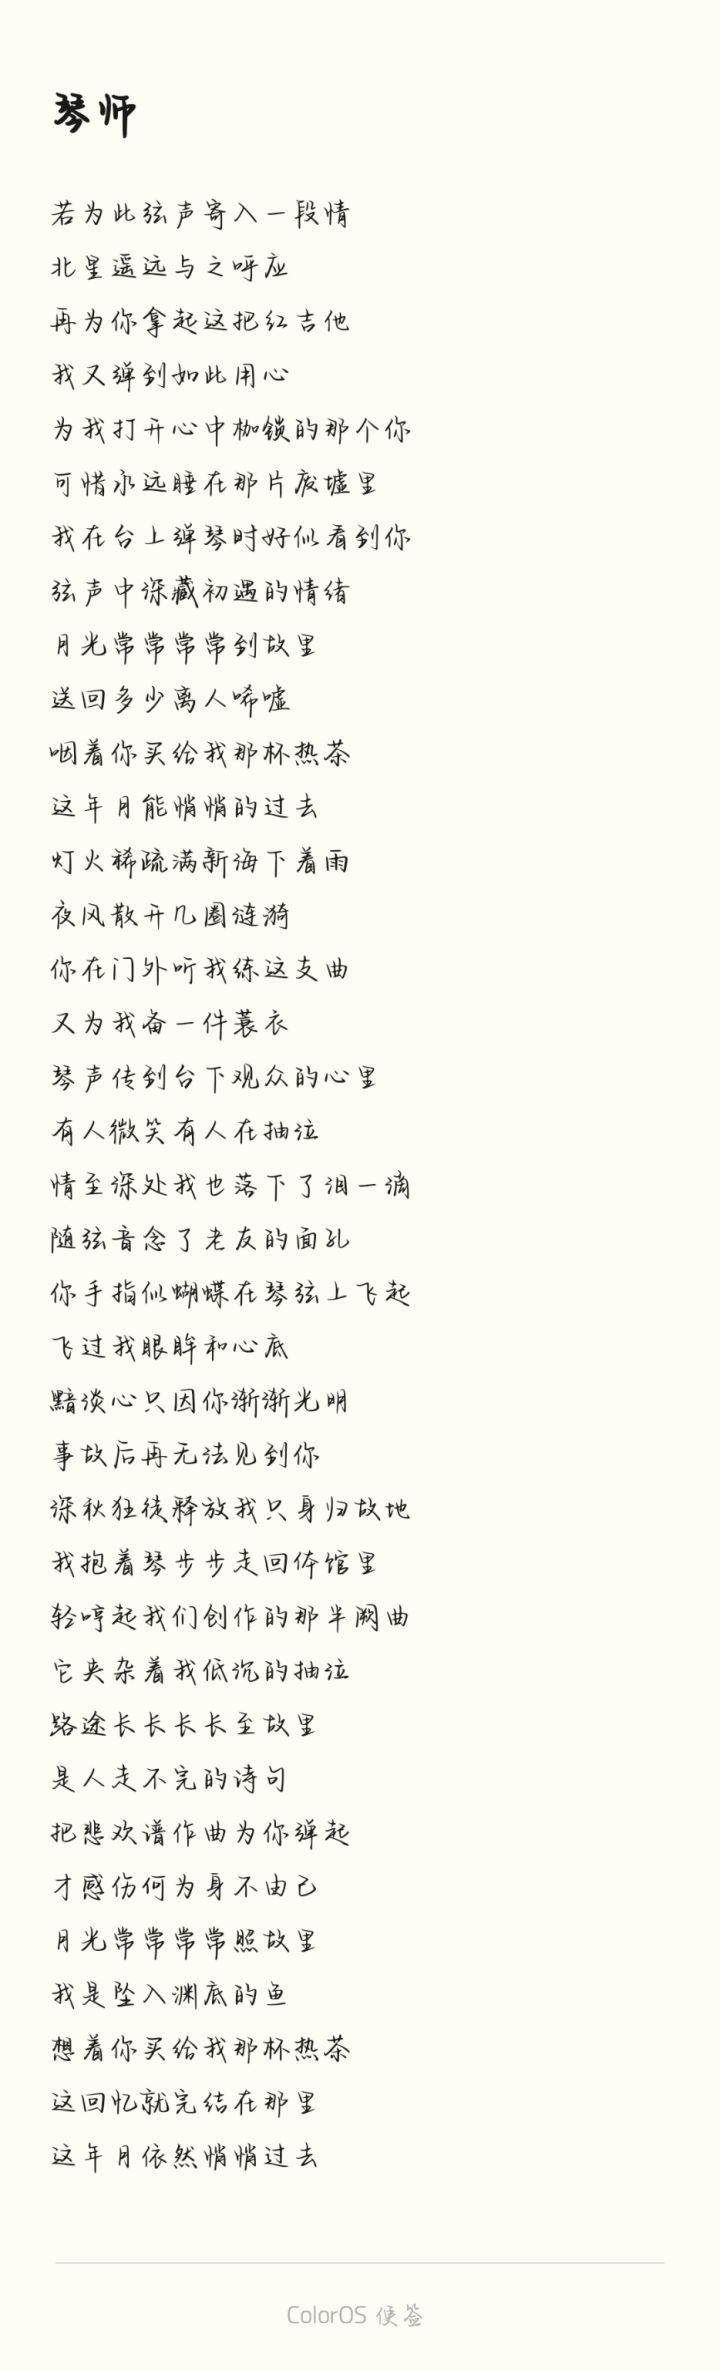 琴师
若为此弦声寄入一段情
北星遥远与之呼应
再为你拿起这把红吉他
我又弹到如此用心
为我打开心中枷锁的那个你
可惜永远睡在那片废墟里
我在台上弹琴时好似看到你
弦声中深藏初遇的情绪
月光常常常常到故里
送回多少离人唏嘘
咽着你买给我那杯热茶
这年月能悄悄的过去
灯火稀疏满新海下着雨
夜风散开几圈涟漪
你在门外听我练这支曲
又为我备一件蓑衣
琴声传到台下观众的心里
有人微笑有人在抽泣
情至深处我也落下了泪一滴
随弦音念了老友的面孔
你手指似蝴蝶在琴弦上飞起
飞过我眼眸和心底
黯淡心只因你渐渐光明
事故后再无法见到你
深秋狂徒释放我只身归故地
我抱着琴步步走回体馆里
轻哼起我们创作的那半阙曲
它夹杂着我低沉的抽泣
路途长长长长至故里
是人走不完的诗句
把悲欢谱作曲为你弹起
才感伤何为身不由己
月光常常常常照故里
我是坠入渊底的鱼
想着你买给我那杯热茶
这回忆就完结在那里
这年月依然悄悄过去
ColorOS 便签